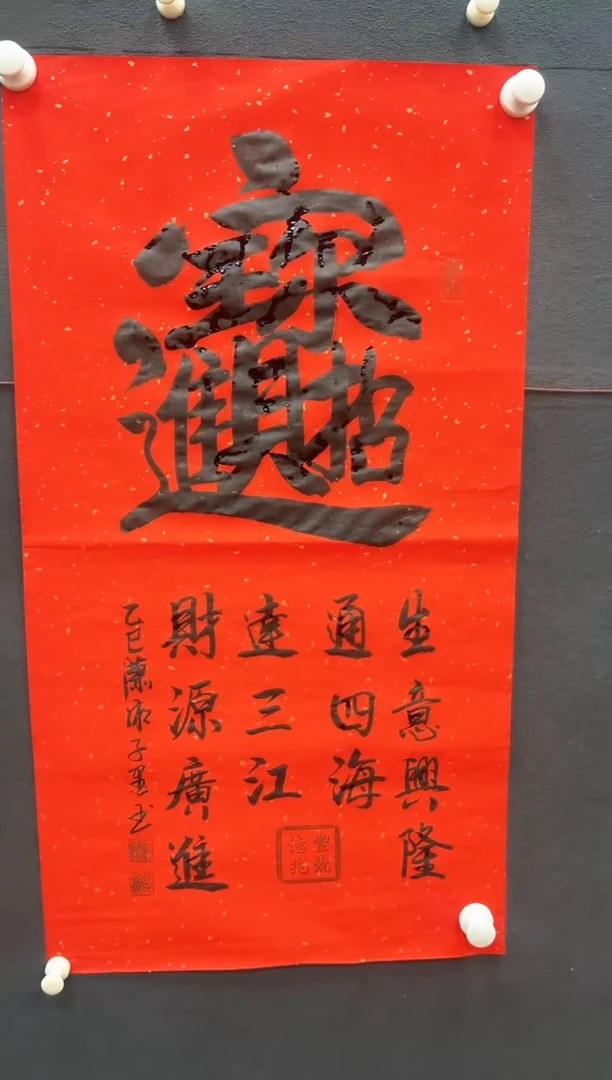 招財進寶
生意興隆
通四海
達三江
財源廣進
乙巳